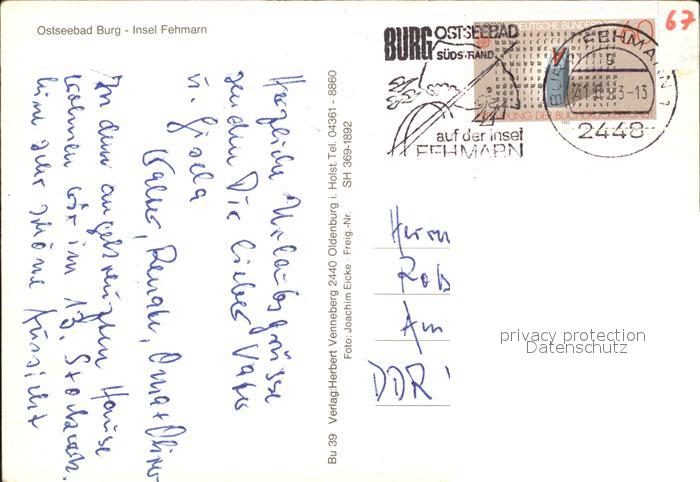 Ostseebad Burg - Insel Fehmarn
Herzliche Urlaubsgrüsse
senden Dir lieber Vater
u. Gisela
Walter, Renate, Oma + Oliver
In dem angekreuzten Hause
wohnen wir im 13. Stockwerk.
eine sehr schöne Aussicht
Bu 39 Verlag: Herbert Venneberg 2440 Oldenburg i. Holst. Tel. 04361 - 8860
Foto: Joachim Eicke · Freig.-Nr. SH 369-1892
BURG OSTSEEBAD
SÜDSTRAND
auf der Insel
FEHMARN
DEUTSCHE BUNDESPOST
60
ERFINDUNG DER BUCHDRUCKERKUNST
BURG
FEHMARN 1
83-13
2448
67
Herrn
Rob
Am
DDR
privacy protection
Datenschutz